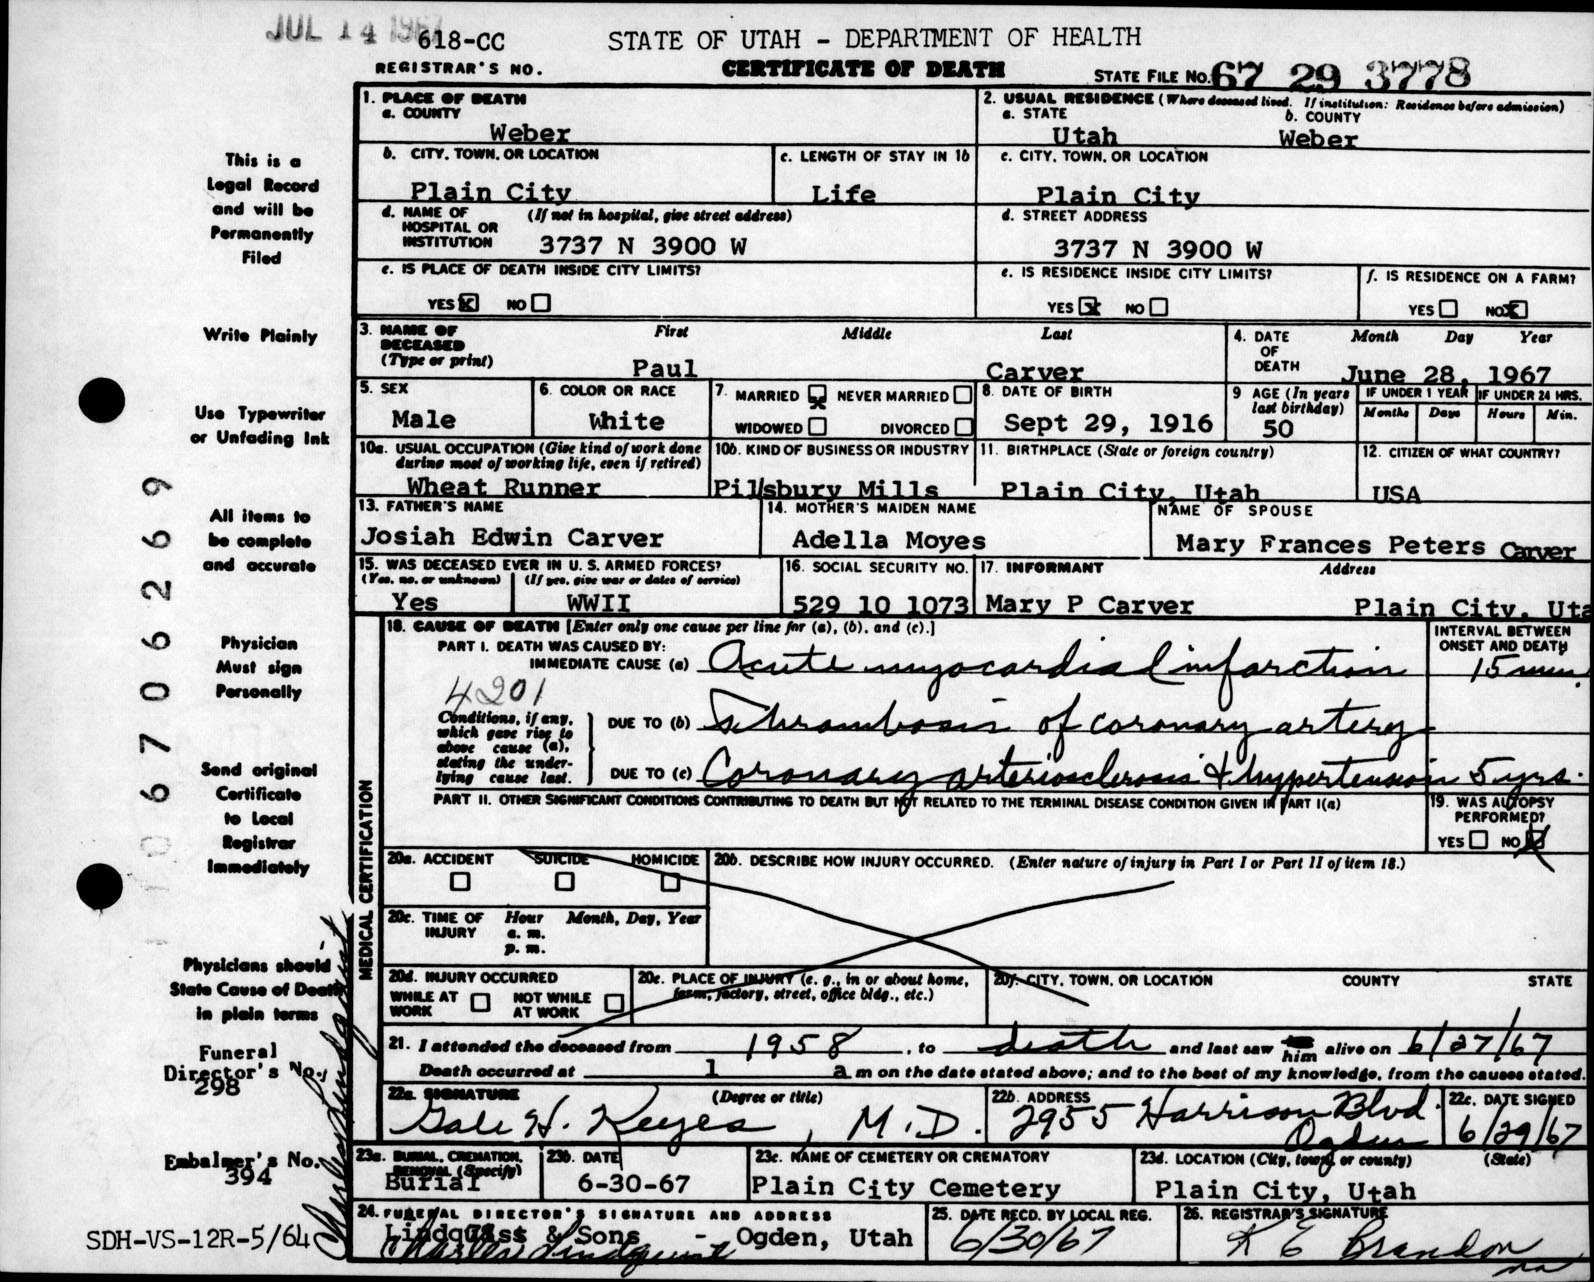 JUL 14 1967
618-CC
REGISTRAR'S NO.
STATE OF UTAH - DEPARTMENT OF HEALTH
CERTIFICATE OF DEATH
STATE FILE NO. 67 29 3778
This is a
Legal Record
and will be
Permanently
Filed
Write Plainly
Use Typewriter
or Unfading Ink
All items to
be complete
and accurate
Physician
Must sign
Personally
Send original
Certificate
to Local
Registrar
Immediately
Physicians should
State Cause of Death
in plain terms
Funeral
Director's No.
298
Embalmer's No.
394
SDH-VS-12R-5/64
067066269
Charles Lindquist
1. PLACE OF DEATH
a. COUNTY
Weber
2. USUAL RESIDENCE (Where deceased lived. If institution: Residence before admission)
a. STATE
Utah
b. COUNTY
Weber
b. CITY, TOWN, OR LOCATION
Plain City
c. LENGTH OF STAY IN 1b
Life
c. CITY, TOWN, OR LOCATION
Plain City
d. NAME OF HOSPITAL OR INSTITUTION (If not in hospital, give street address)
3737 N 3900 W
d. STREET ADDRESS
3737 N 3900 W
e. IS PLACE OF DEATH INSIDE CITY LIMITS?
YES X NO
e. IS RESIDENCE INSIDE CITY LIMITS?
YES X NO
f. IS RESIDENCE ON A FARM?
YES NO X
3. NAME OF DECEASED (Type or print)
First Middle Last
Paul Carver
4. DATE OF DEATH
Month Day Year
June 28, 1967
5. SEX
Male
6. COLOR OR RACE
White
7. MARRIED X NEVER MARRIED
WIDOWED DIVORCED
8. DATE OF BIRTH
Sept 29, 1916
9 AGE (In years last birthday)
50
IF UNDER 1 YEAR
Months Days
IF UNDER 24 HRS.
Hours Min.
10a. USUAL OCCUPATION (Give kind of work done during most of working life, even if retired)
Wheat Runner
10b. KIND OF BUSINESS OR INDUSTRY
Pillsbury Mills
11. BIRTHPLACE (State or foreign country)
Plain City, Utah
12. CITIZEN OF WHAT COUNTRY?
USA
13. FATHER'S NAME
Josiah Edwin Carver
14. MOTHER'S MAIDEN NAME
Adella Moyes
NAME OF SPOUSE
Mary Frances Peters Carver
15. WAS DECEASED EVER IN U. S. ARMED FORCES?
(Yes, no, or unknown) (If yes, give war or dates of service)
Yes WWII
16. SOCIAL SECURITY NO.
529 10 1073
17. INFORMANT Address
Mary P Carver Plain City, Uta
MEDICAL CERTIFICATION
18. CAUSE OF DEATH [Enter only one cause per line for (a), (b), and (c).]
INTERVAL BETWEEN ONSET AND DEATH
PART I. DEATH WAS CAUSED BY:
IMMEDIATE CAUSE (a) Acute myocardial infarction 15 min.
4201
Conditions, if any, which gave rise to above cause (a), stating the underlying cause last.
DUE TO (b) Thrombosis of coronary artery
DUE TO (c) Coronary arteriosclerosis & hypertension 5 yrs.
PART II. OTHER SIGNIFICANT CONDITIONS CONTRIBUTING TO DEATH BUT NOT RELATED TO THE TERMINAL DISEASE CONDITION GIVEN IN PART I(a)
19. WAS AUTOPSY PERFORMED?
YES NO X
20a. ACCIDENT SUICIDE HOMICIDE
20b. DESCRIBE HOW INJURY OCCURRED. (Enter nature of injury in Part I or Part II of item 18.)
20c. TIME OF INJURY
Hour Month, Day, Year
a. m.
p. m.
20d. INJURY OCCURRED
WHILE AT WORK NOT WHILE AT WORK
20e. PLACE OF INJURY (e. g., in or about home, farm, factory, street, office bldg., etc.)
20f. CITY, TOWN, OR LOCATION COUNTY STATE
21. I attended the deceased from 1958, to death and last saw him alive on 6/27/67
Death occurred at 1 a m on the date stated above; and to the best of my knowledge, from the causes stated.
22a. SIGNATURE (Degree or title)
Gale H. Keyes, M.D.
22b. ADDRESS
2955 Harrison Blvd.
Ogden
22c. DATE SIGNED
6/29/67
23a. BURIAL, CREMATION, REMOVAL (Specify)
Burial
23b. DATE
6-30-67
23c. NAME OF CEMETERY OR CREMATORY
Plain City Cemetery
23d. LOCATION (City, town, or county) (State)
Plain City, Utah
24. FUNERAL DIRECTOR'S SIGNATURE AND ADDRESS
Lindquist & Sons - Ogden, Utah
Charles Lindquist
25. DATE RECD. BY LOCAL REG.
6/30/67
26. REGISTRAR'S SIGNATURE
K E Brandon